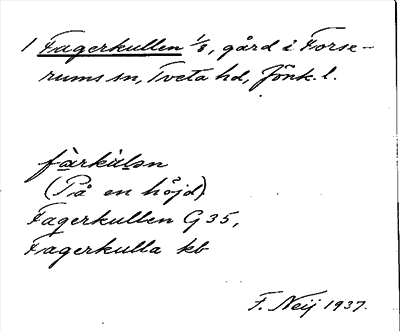 1 Fagerkullen 1/8, gård i Forse-
rums sn, Tveta hd, Jönk. l.
fàrkùlən
(På en höjd)
Fagerkullen G 35,
Fagerkulla kb
F. Neij 1937.